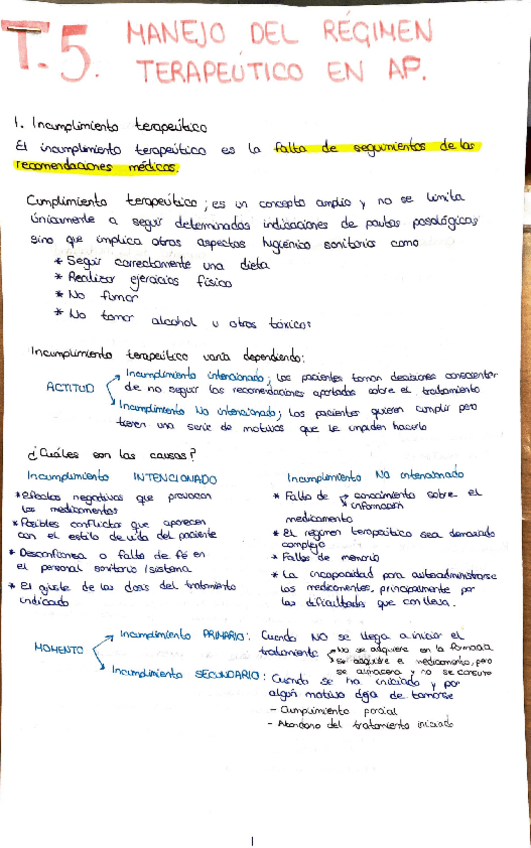 T.5. MANEJO DEL RÉGIMEN
TERAPEÚTICO EN AP.
1. Incumplimiento terapeútico
El incumplimiento terapeútico es la falta de seguimientos de las
recomendaciones médicas.
Cumplimiento terapeútico; es un concepto amplio y no se limita
únicamente a seguir determinadas indicaciones de pautas posológicas
sino que implica otros aspectos higiénico sanitarios como
* Seguir correctamente una dieta
* Realizar ejercicios físico
* No fumar
* No tomar alcohol u otros tóxicos
Incumplimiento terapeútico varía dependiendo:
ACTITUD
Incumplimiento intencionado; los pacientes toman decisiones conscientes
de no seguir las recomendaciones aportadas sobre el tratamiento
Incumplimiento No intencionado; los pacientes quieren cumplir pero
tienen una serie de motivos que le impiden hacerlo
¿Cuáles son las causas?
Incumplimiento INTENCIONADO
* Efectos negativos que provocan
los medicamentos
* Posibles conflictos que aparecen
con el estilo de vida del paciente
* Desconfianza o falta de fé en
el personal sanitario/sistema
* El ajuste de las dosis del tratamiento
indicado
Incumplimiento No intencionado
* Falta de conocimiento sobre el
información
medicamento
* El régimen terapeútico sea demasiado
complejo
* Fallos de memoria
* La incapacidad para autoadministrarse
los medicamentos, principalmente por
las dificultades que conlleva.
MOMENTO
Incumplimiento PRIMARIO: Cuando NO se llega a iniciar el
tratamiento
No se adquiere en la farmacia
se adquiere el medicamento, pero
se almacena y no se consume
Incumplimiento SECUNDARIO: Cuando se ha iniciado y por
algún motivo deja de tomarse
- Cumplimiento parcial
- Abandono del tratamiento iniciado
1